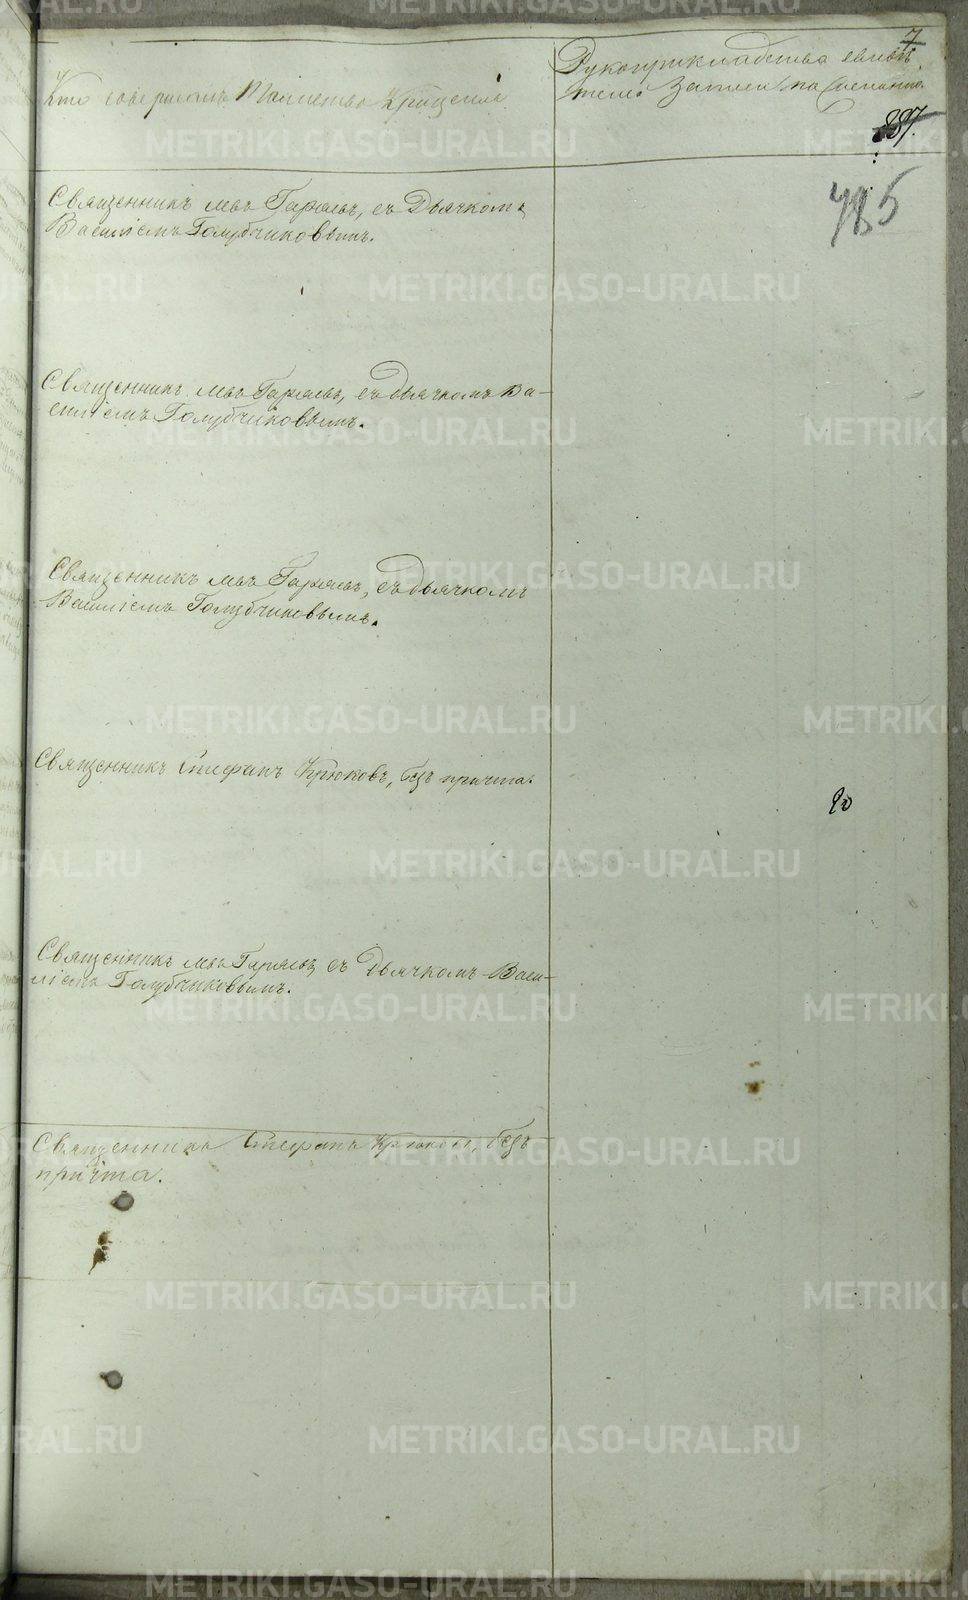 Кто совершалъ Таинство Крещенія
Рукоприкладство свидѣ-
телей записи по
7
897.
785
Священникъ Левъ Гаряевъ, съ Дьячкомъ
Василіемъ Голубчиковымъ.
Священникъ Левъ Гаряевъ, съ дьячкомъ Ва-
силіемъ Голубчиковымъ.
Священникъ Левъ Гаряевъ, съ дьячкомъ
Василіемъ Голубчиковымъ.
Священникъ Стефанъ Крюковъ, безъ причта.
20
Священникъ Левъ Гаряевъ съ Дьячкомъ Васи-
ліемъ Голубчиковымъ.
Священникъ Стефанъ Крюковъ, безъ
причта.
METRIKI.GASO-URAL.RU